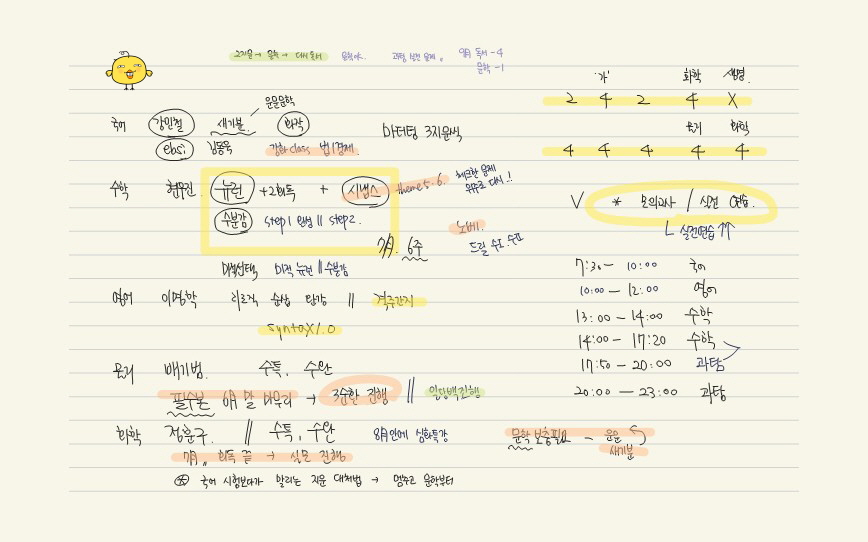 2지문 → 문학 → 다시 독서
과탐 보건 문제.
9월 독서 -4
문학 -1
'가' 화학 생명
2 4 2 4 X
운문문학
국어 강민철 새기분 화작 마더텅 3지문씩
물리 화학
4 4 4 4 4
ebsi 김동욱 강화class 법/경제.
수학 현우진 뉴런 +2회독 + 시냅스 theme 5. 6.
체크한 문제 위주로 다시..!
V * 모의고사 / 실전 연습.
└ 실전연습 ↑↑
수분감 step1 완성 || step2.
노베.
7月. 6주 드릴 수1. 수2
미적 뉴런 || 수분감
7:30 - 10:00 국어
10:00 - 12:00 영어
13:00 - 14:00 수학
14:00 - 17:20 수학
17:50 - 20:00 과탐
20:00 - 23:00 과탐
영어 이명학 리로직 순삽 빈칸 || 격주간지
syntax 1.0
물리 배기범. 수특, 수완
필수본 6月 말 마무리 → 3순환 진행 || 일당백진행
화학 정훈구. || 수특, 수완 8月안에 심화특강
문학 보충필요 - 운문
새기분
7月,, 회독 끝 → 실모 진행
* 국어 시험보다가 말리는 지문 대처법 → 멈추고 문학부터